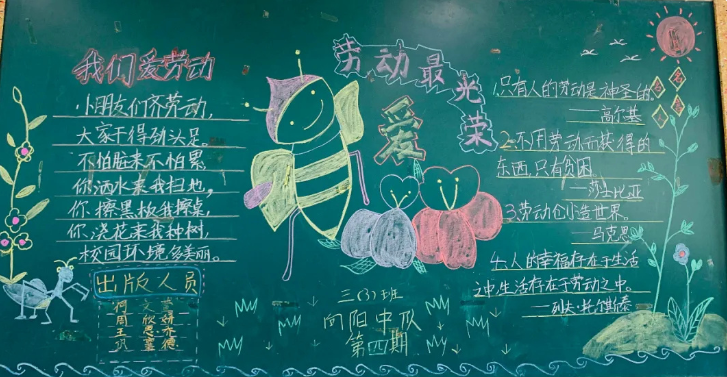 我们爱劳动
小朋友们齐劳动,
大家干得到头足。
不怕脏来不怕累,
你洒水来我扫地,
你擦黑板我擦桌,
你浇花来我种树,
校园环境多美丽。
出版人员
劳动最光荣
爱
三(3)班
向阳中队
第四期
1.只有人的劳动是神圣的。
——高尔基
2.不用劳动而获得的
东西,只有贫困。
——莎士比亚
3.劳动创造世界。
马克思
4.人的幸福存在于生活
之中,生活存在于劳动之中。
——列夫·托尔斯泰